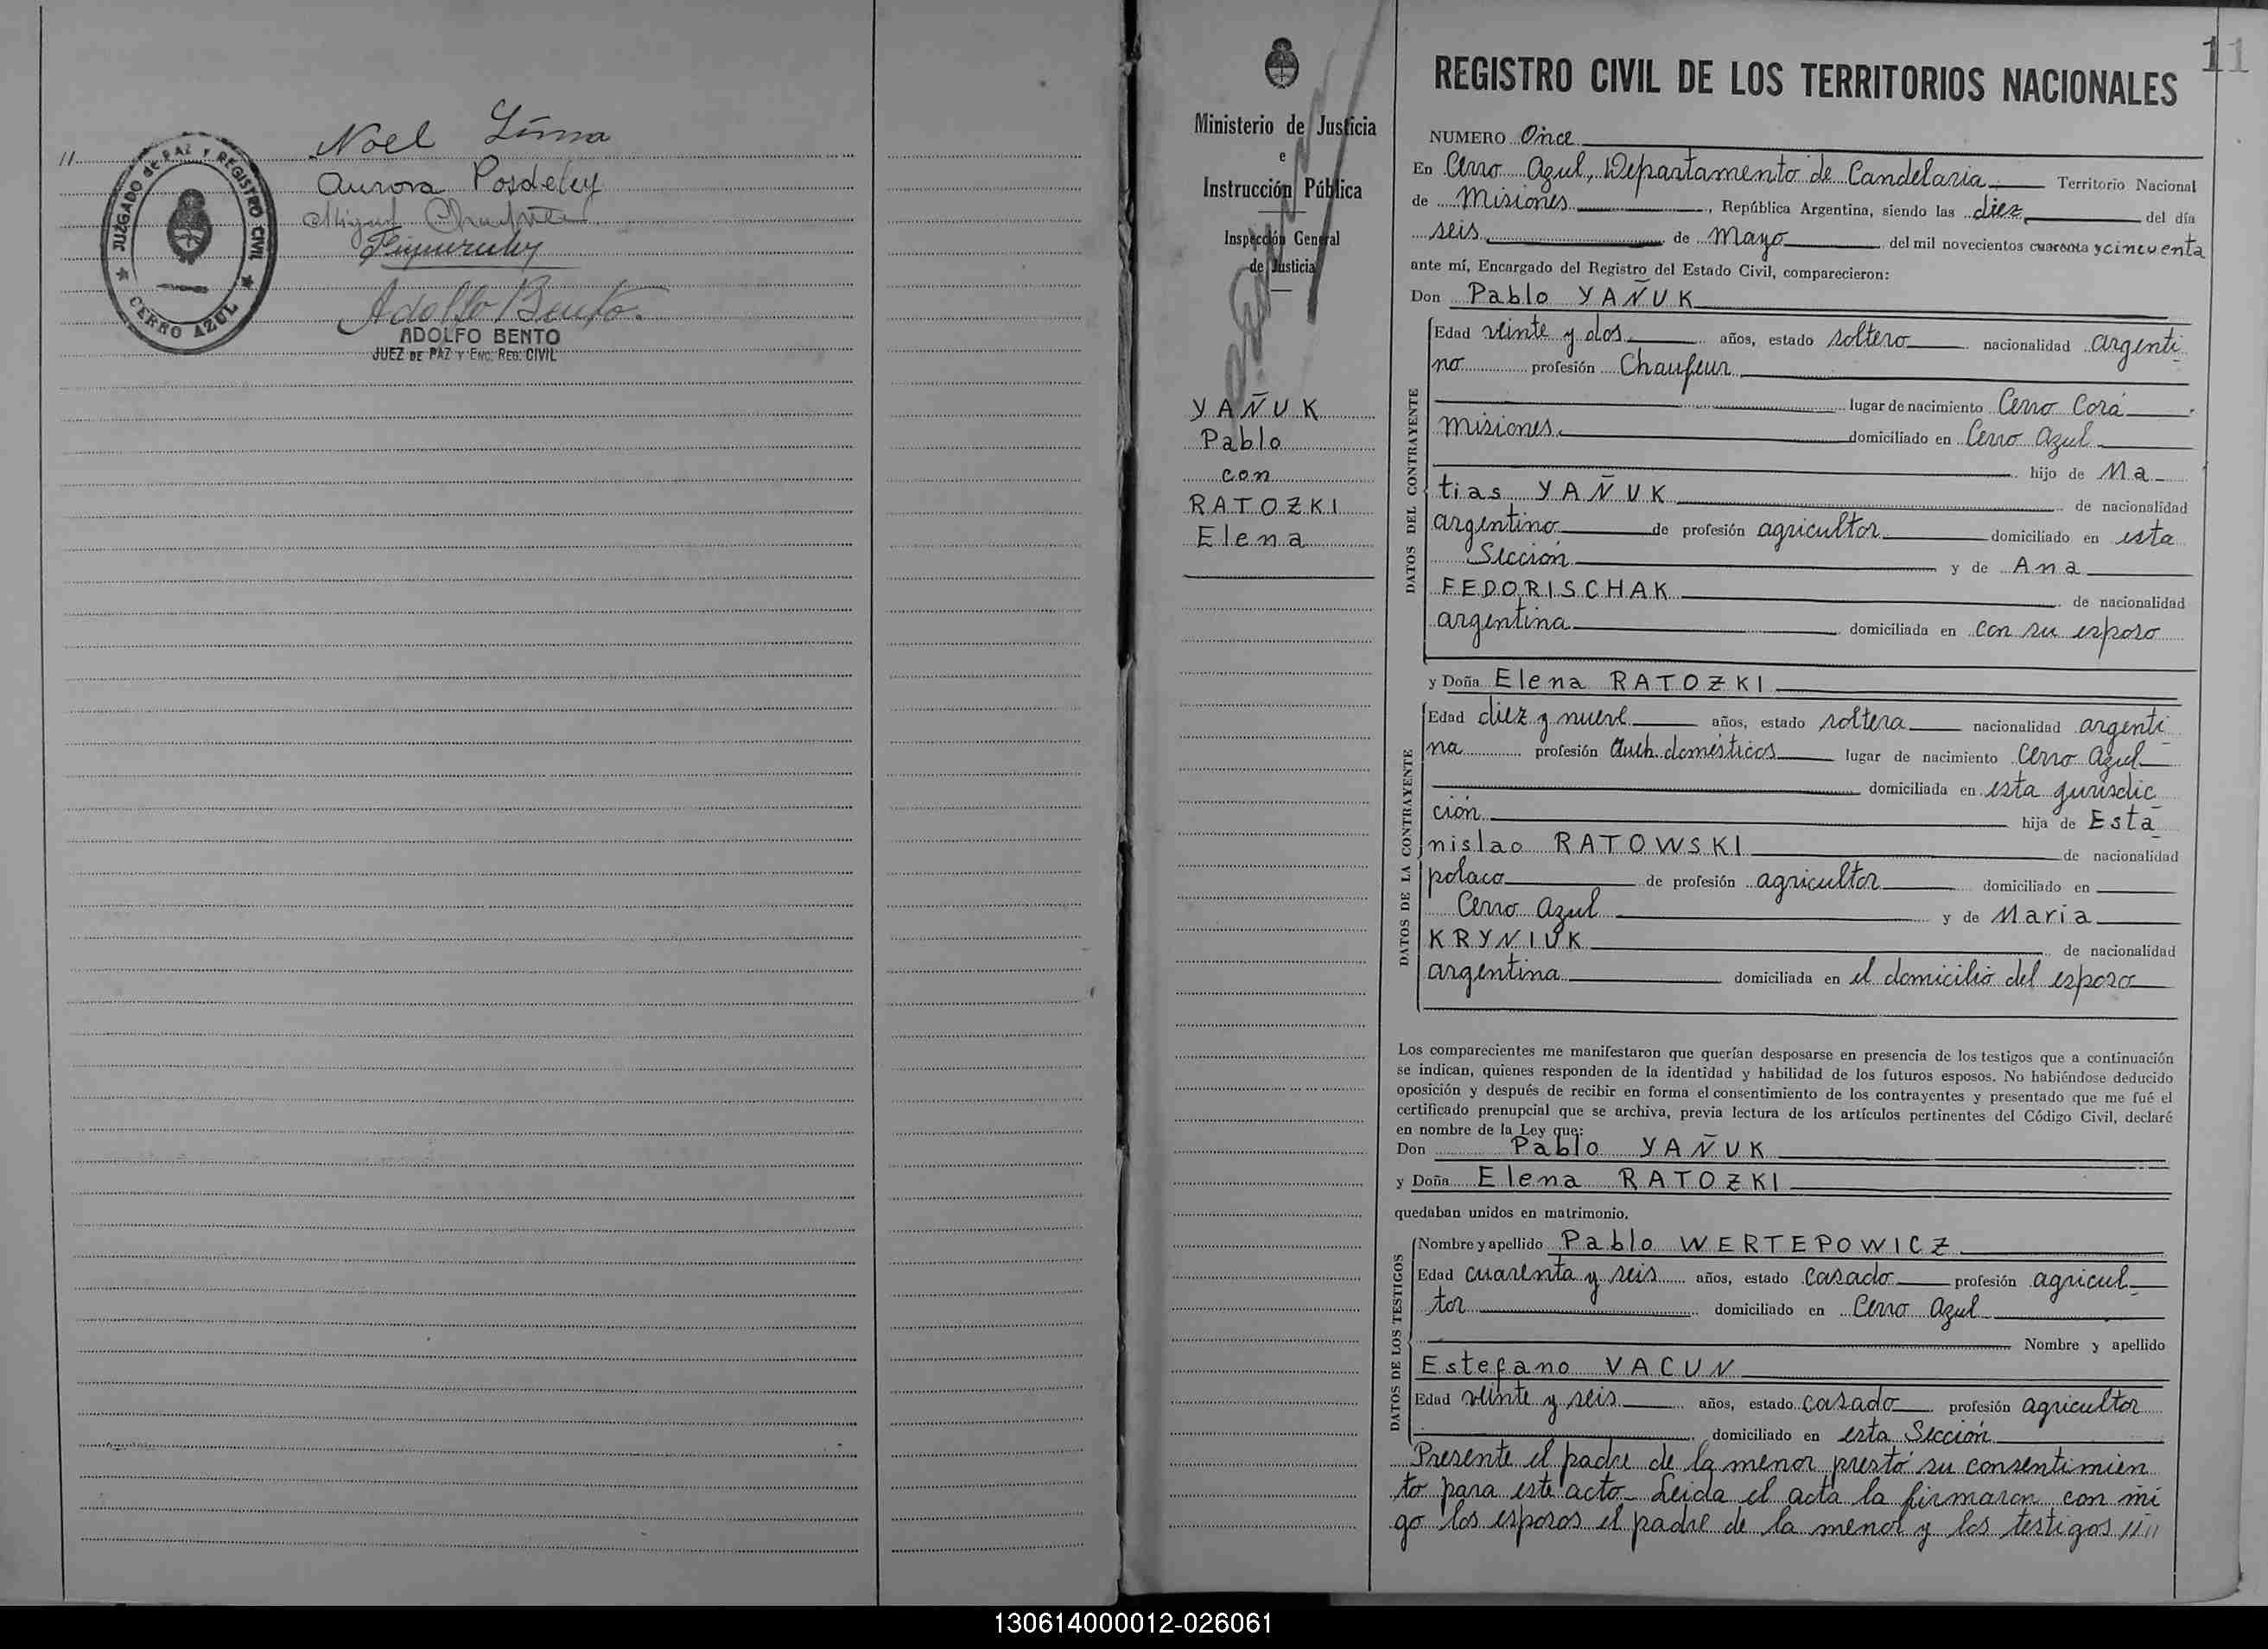 11
JUZGADO de PAZ Y REGISTRO CIVIL
CERRO AZUL
Noel Lima
Aurora Posdeley
Miguel
Adolfo Bento
ADOLFO BENTO
JUEZ DE PAZ Y ENC. REG. CIVIL
Ministerio de Justicia
e
Instrucción Pública
Inspección General
de Justicia
YAÑUK
Pablo
con
RATOZKI
Elena
11
REGISTRO CIVIL DE LOS TERRITORIOS NACIONALES
NUMERO Once
En Cerro Azul, Departamento de Candelaria Territorio Nacional
de Misiones, República Argentina, siendo las diez del día
seis de Mayo del mil novecientos cuarenta y cincuenta
ante mí, Encargado del Registro del Estado Civil, comparecieron:
Don Pablo YAÑUK
DATOS DEL CONTRAYENTE
Edad veinte y dos años, estado soltero nacionalidad argenti
no profesión Chaufeur
lugar de nacimiento Cerro Corá
Misiones. domiciliado en Cerro Azul
hijo de Ma
tias YAÑUK de nacionalidad
argentino de profesión agricultor domiciliado en esta
Sección y de Ana
FEDORISCHAK de nacionalidad
argentina domiciliada en con su esposo
y Doña Elena RATOZKI
DATOS DE LA CONTRAYENTE
Edad diez y nueve años, estado soltera nacionalidad argenti
na profesión Queh. domésticos lugar de nacimiento Cerro Azul
domiciliada en esta jurisdic
ción hija de Esta
nislao RATOWSKI de nacionalidad
polaco de profesión agricultor domiciliado en
Cerro Azul y de Maria
KRYNIUK de nacionalidad
argentina domiciliada en el domicilio del esposo
Los comparecientes me manifestaron que querían desposarse en presencia de los testigos que a continuación
se indican, quienes responden de la identidad y habilidad de los futuros esposos. No habiéndose deducido
oposición y después de recibir en forma el consentimiento de los contrayentes y presentado que me fué el
certificado prenupcial que se archiva, previa lectura de los artículos pertinentes del Código Civil, declaré
en nombre de la Ley que:
Don Pablo YAÑUK
y Doña Elena RATOZKI
quedaban unidos en matrimonio.
DATOS DE LOS TESTIGOS
Nombre y apellido Pablo WERTEPOWICZ
Edad cuarenta y seis años, estado casado profesión agricul
tor domiciliado en Cerro Azul
Nombre y apellido
Estefano VACUN
Edad veinte y seis años, estado casado profesión agricultor
domiciliado en esta Sección
Presente el padre de la menor prestó su consentimien
to para este acto. Leida el acta la firmaron con mi
go los esposos el padre de la menor y los testigos
130614000012-026061